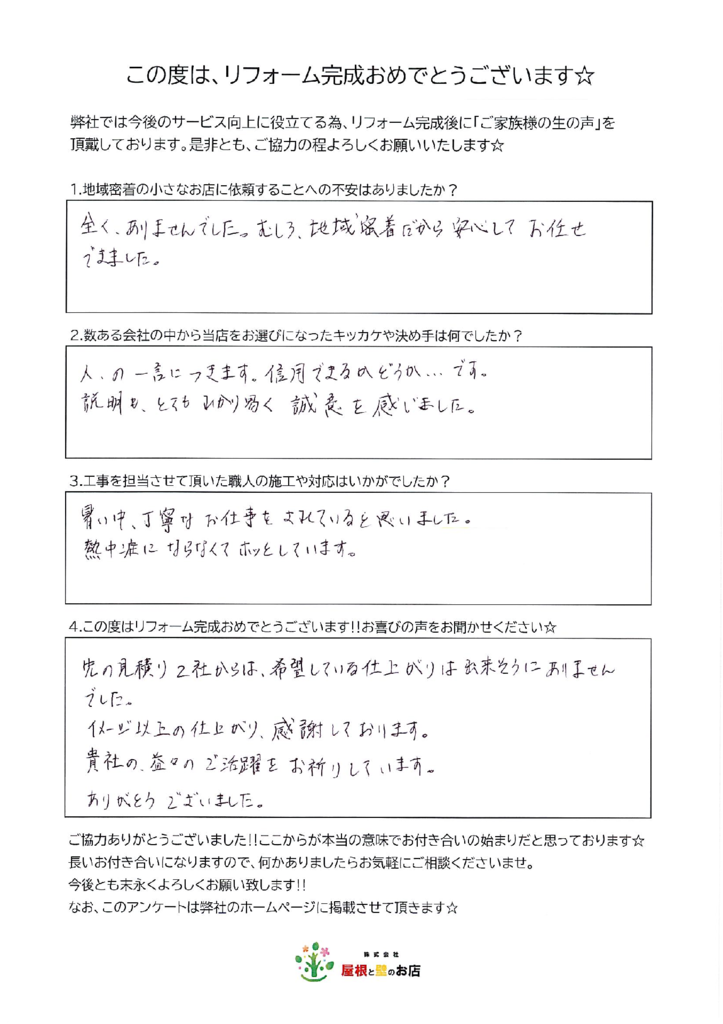 この度は、リフォーム完成おめでとうございます☆
弊社では今後のサービス向上に役立てる為、リフォーム完成後に「ご家族様の生の声」を
頂戴しております。是非とも、ご協力の程よろしくお願いいたします☆
1.地域密着の小さなお店に依頼することへの不安はありましたか？
全く、ありませんでした。むしろ、地域密着だから安心して お任せ
できました。
2.数ある会社の中から当店をお選びになったキッカケや決め手は何でしたか？
人、の一言につきます。信用できるかどうか…です。
説明も、とても わかり易く 誠意を感じました。
3.工事を担当させて頂いた職人の施工や対応はいかがでしたか？
暑い中、丁寧な お仕事を されていると思いました。
熱中症に ならなくて ホッとしています。
4.この度はリフォーム完成おめでとうございます!!お喜びの声をお聞かせください☆
先の見積り2社からは、希望している仕上がりは出来そうにありません
でした。
イメージ以上の仕上がり、感謝しております。
貴社の、益々の ご活躍を お祈りしています。
ありがとう ございました。
ご協力ありがとうございました!!ここからが本当の意味でお付き合いの始まりだと思っております☆
長いお付き合いになりますので、何かありましたらお気軽にご相談くださいませ。
今後とも末永くよろしくお願い致します!!
なお、このアンケートは弊社のホームページに掲載させて頂きます☆
株式会社
屋根と壁のお店